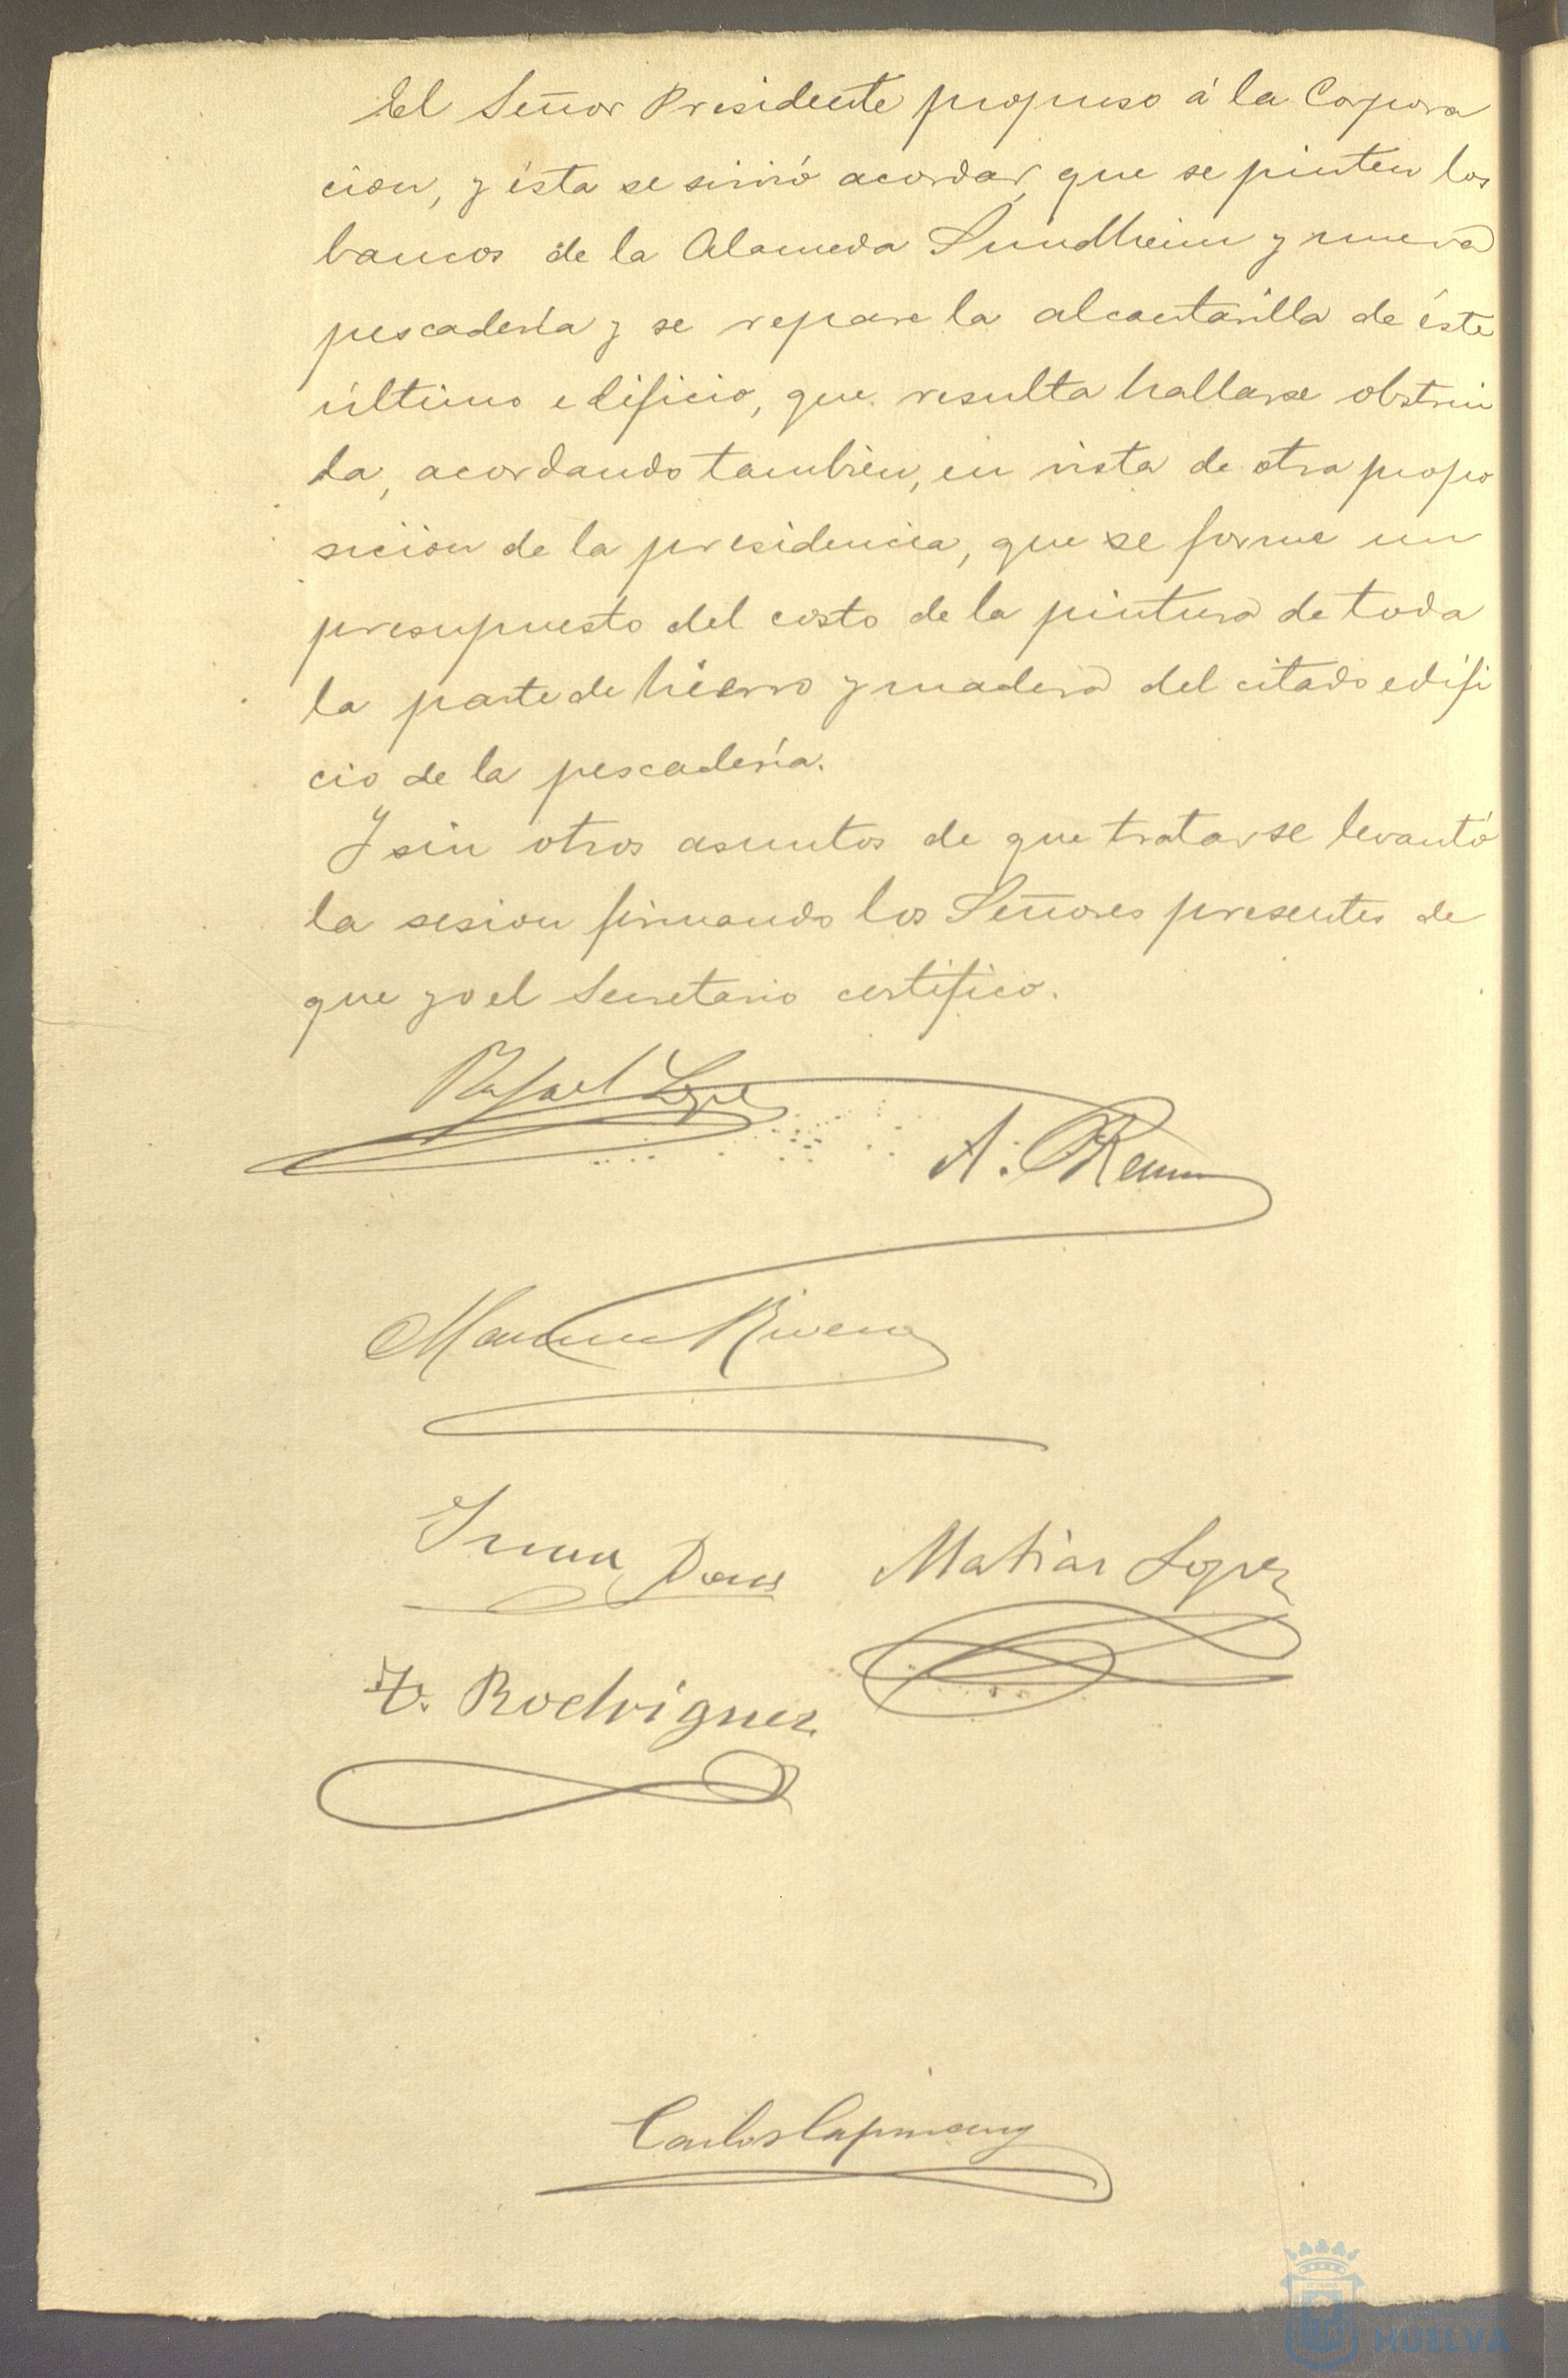 El Señor Presidente propuso á la Corpora
cion, y ésta se sirvió acordar, que se pinten los
bancos de la Alameda Sundheim y nueva
pescadería y se repare la alcantarilla de éste
último edificio, que resulta hallarse obstrui
da, acordando también, en vista de otra propo
sicion de la presidencia, que se forme un
presupuesto del costo de la pintura de toda
la parte de hierro y madera del citado edifi
cio de la pescadería.
Y sin otros asuntos de que tratar se levantó
la sesion firmando los Señores presentes de
que yo el Secretario certifico.
Rafael Lopez
A.
Manuel Rivera
Juan
Matias Lopez
Rodriguez
Carlos
HUELVA